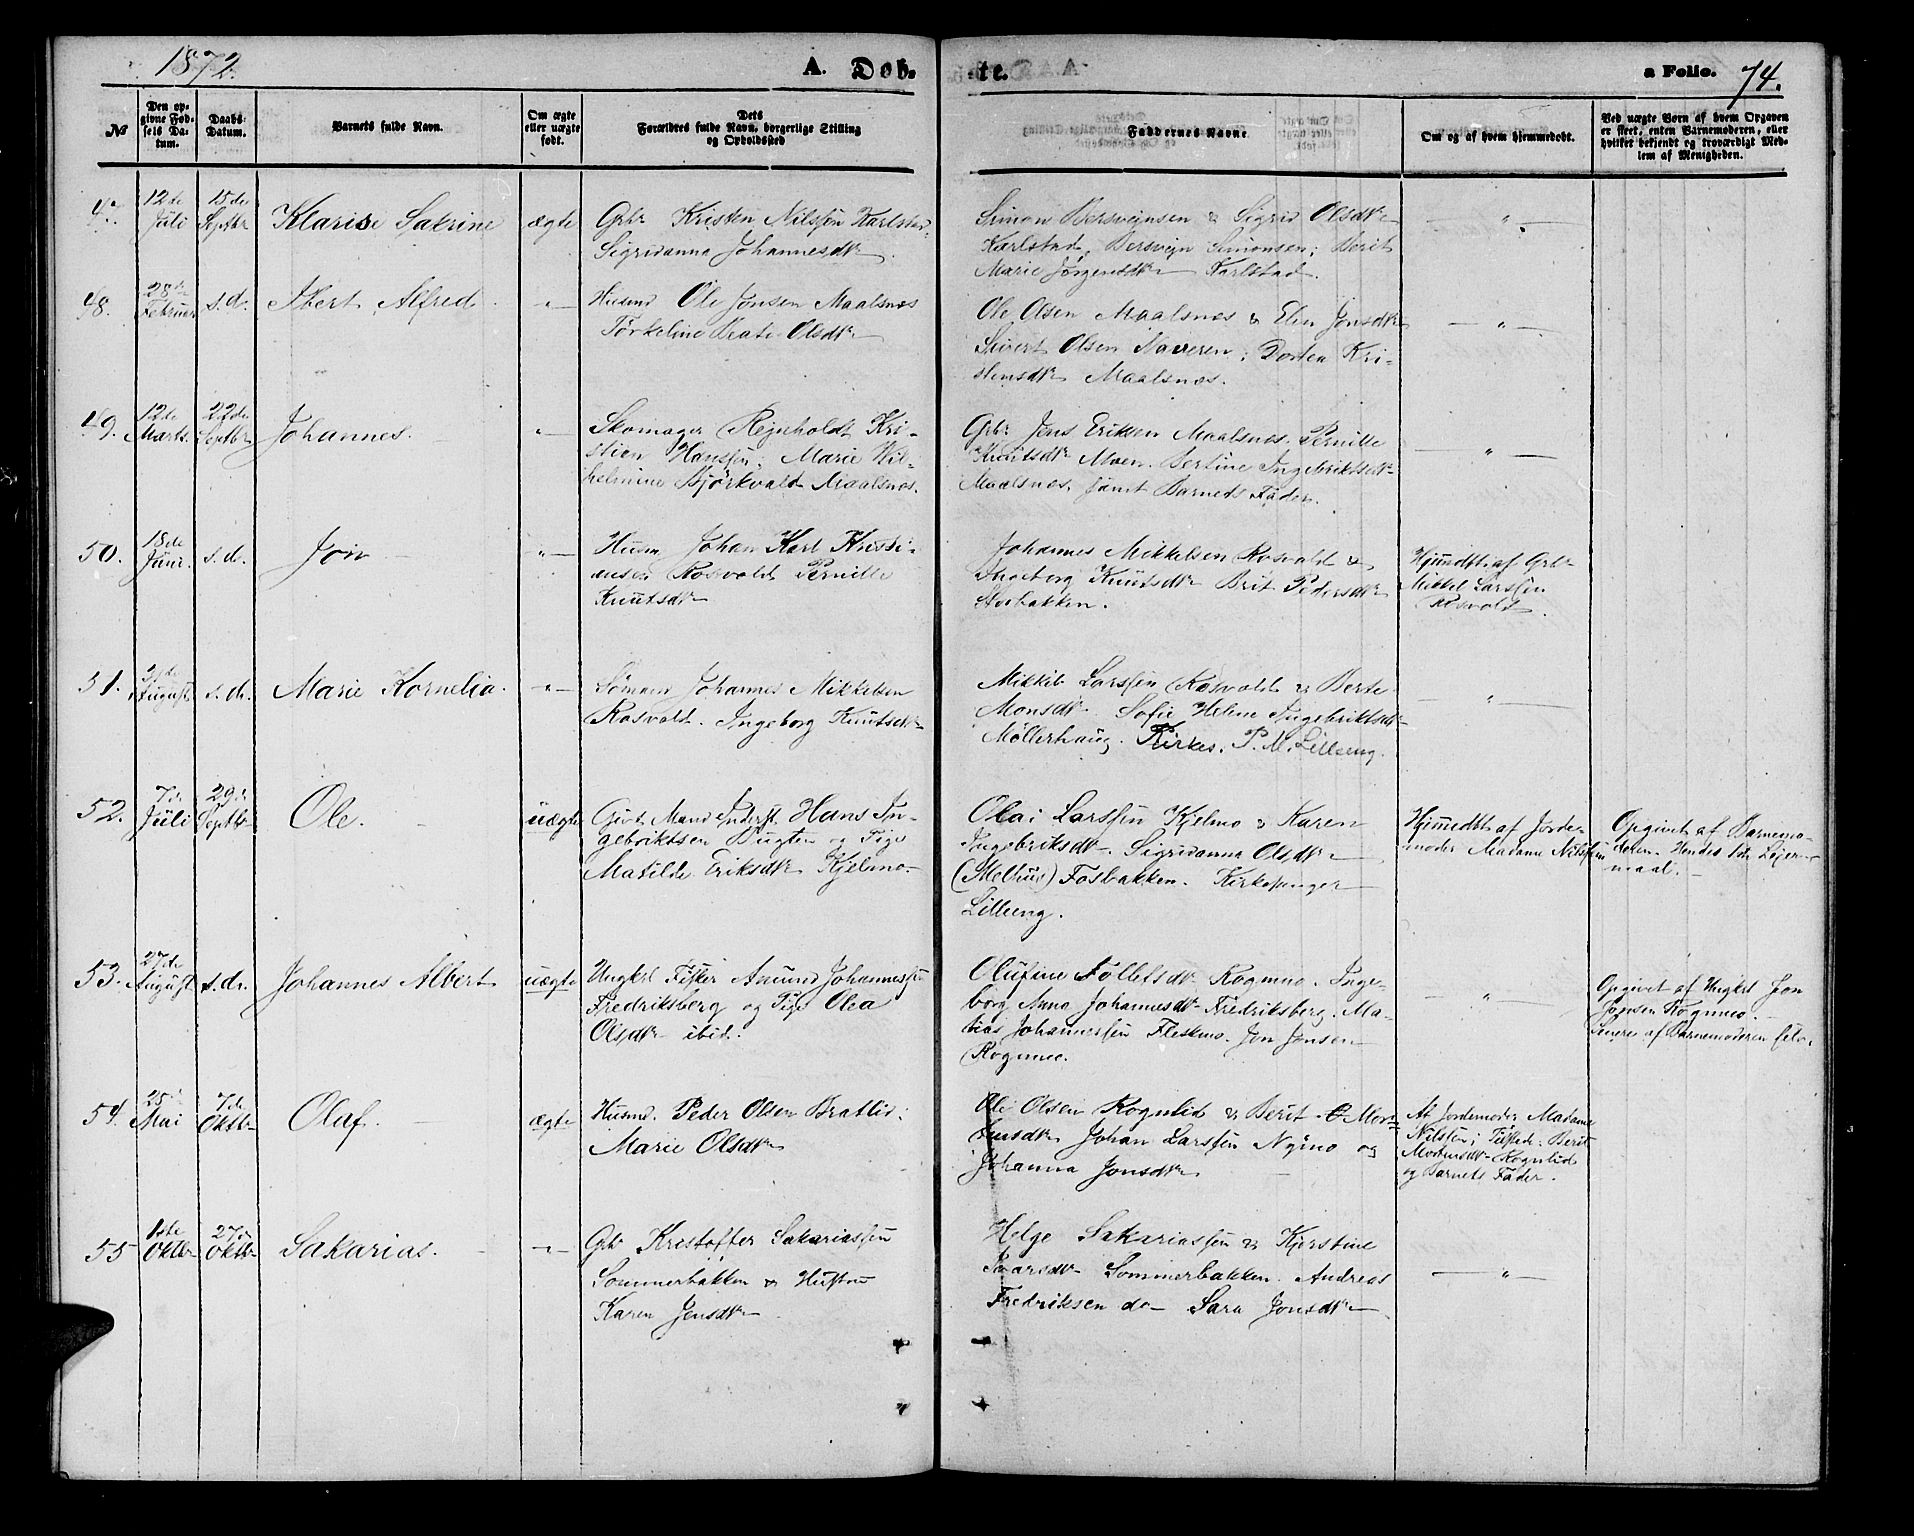 1872.
A. Døb-
-te.
a Folio. 74.
№
Den op-
givne Fød-
sels Da-
tum.
Daabs-
Datum.
Barnets fulde Navn.
Om ægte
eller uægte
født.
Dets
Forældres fulde Navn, borgerlige Stilling
og Opholdssted
Faddernes Navne
Om og af hvem hjemmedøbt.
Ved uægte Børn af hvem Opgaven
er skeet, enten Barnemoderen, eller
hvilket bekjendt og troværdigt Med-
lem af Menigheden.
47.
12te
Juli
15de
Septbr
Klarise Sakrine
ægte
Gbr Kristen Nilssen Karlstad.
Sigridanna Johannesdtr
Simon Bersvejnsen & Sigrid Olsdtr
Karlstad, Bersvejn Simonsen; Berit
Marie Jørgensdtr Karlstad.
48.
28de
Februar
s.d.
Alfred
Husmd Ole Jonsen Maalsnes
Torkeline Beate Olsdtr
Ole Olsen Maalsnes & Elen Jonsdtr
Sivert Olsen Naveren; Dortea Kri-
stensdtr Maalsnes.
49.
12te
Marts
22de
Septbr
Johannes.
Skomager Rejnholdt Kri-
stien Hanssen; Marie Wil-
helmine Bjørkvald Maalsnes.
Gbr Jens Eriksen Maalsnes. Pernille
Knutsdtr Moen. Bertine Ingebriktsdtr
Maalsnes, samt Barnets Fader.
50.
18de
Juni.
s.d.
Jon
Husm Johan Karl Kristi-
ansen Rosvold Pernille
Knutsdtr
Johannes Mikkelsen Rosvold &
Ingeborg Knutsdtr Brit Pedersdtr
Storbakken.
Hjemdbt af Gbr
Mikkel Larssen
Rosvold.
51.
August
s.d.
Marie Kornelia.
Sømand Johannes Mikkelsen
Rosvold. Ingeborg Knutsdtr
Mikkel Larssen Rosvold & Berte
Monsdtr. Sofie Helene Ingebriktsdtr
Møllerhaug. Kirkes. P. M. Lilleeng.
52.
7de
Juli
29de
Septbr
Ole.
uægte
Gift Mand Inderst Hans In-
gebriktsen Bugten og Pige
Matilde Eriksdtr Kjelmo
Olai Larssen Kjelmo & Karen
Ingebriksdtr. Sigridanna Olsdtr
(Melhus) Fosbakken. Kirkesanger
Lilleeng.
Hjemmedbt af Jorde-
moder Madame Nilssen
Opgivet af Barnemo-
deren. Hendes 1ste Lejer-
maal.
53.
27de
August
s.d.
Johannes Albert
uægte
Ungkrl Fisker Amund Johannessen
Fredriksberg og Pige Olea
Olsdtr ibid.
Olufine Tollefsdtr Rogmoe. Inge-
borg Anna Johannesdtr Fredriksberg. Ma-
tias Johannessen Fleskmo. Jon Jonsen
Rogmoe.
Opgivet af Ungkrl Jon
Jonsen Rogmoe.
Senere af Barnemoderen selv.
54.
25de
Mai
7de
Oktbr
Olaf.
ægte
Husmd. Peder Olsen Bratlid;
Marie Olsdtr
Ole Olsen Rognlid & Berit Mor-
tensdtr Johan Larssen Nymo og
Johanna Jonsdtr
Af Jordemoder Madame
Nilssen; Tilstede: Berit
Mortensdtr Rognlid
og Barnets Fader.
55
1ste
Oktbr
27de
Oktbr
Sakarias.
Gbr Kristoffer Sakariassen
Sommerbakken & Hustru
Karen Jensdtr
Helge Sakariassen & Kjerstine
Ivarsdtr Sommerbakken. Andreas
Fredriksen do Sara Jonsdtr